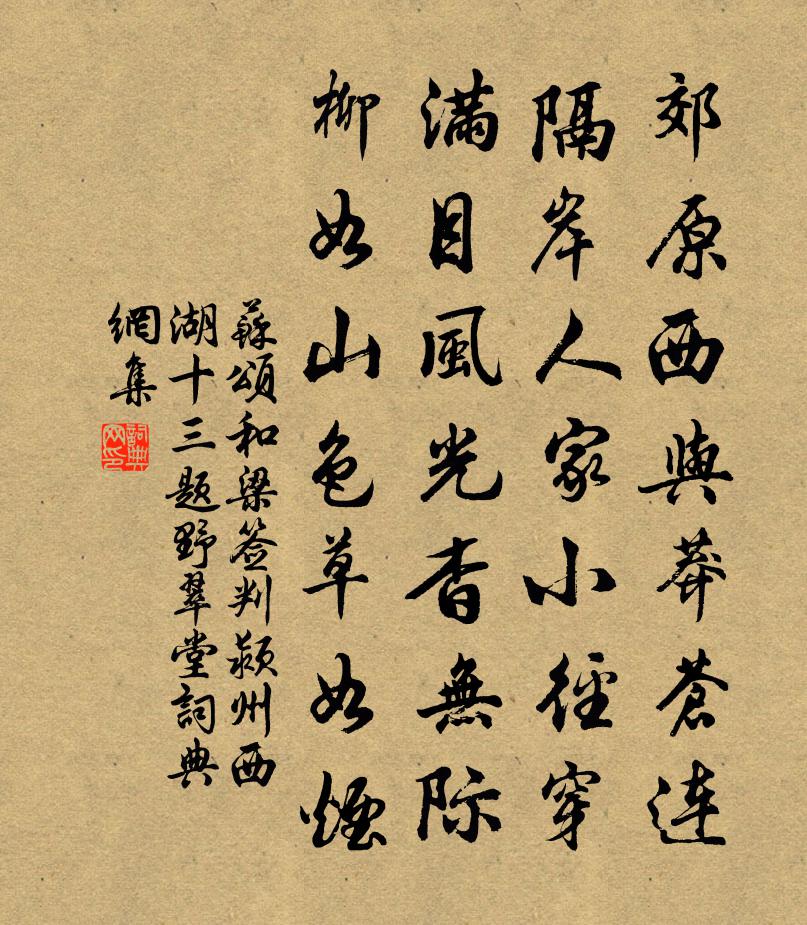 郊原西與莽蒼連
隔岸人家小徑穿
滿目風光杳無际
柳如山色草如煙
蘇頌和梁签判颍州西
湖十三题野翠堂詞典
網集
詞典网印